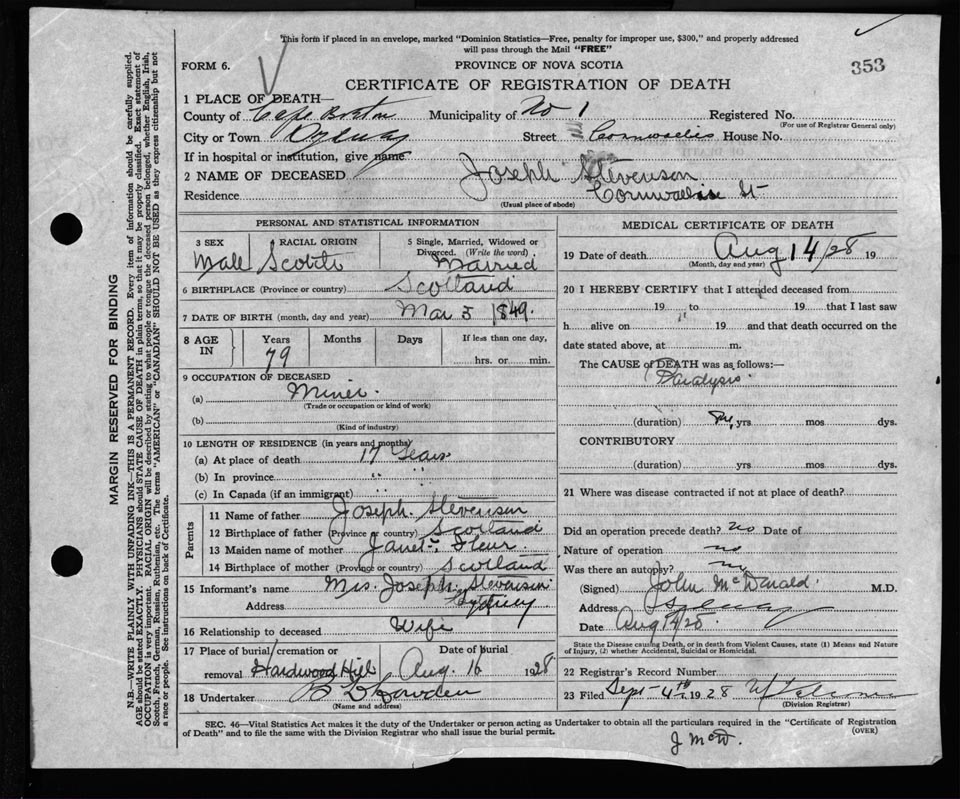 This form if placed in an envelope, marked "Dominion Statistics—Free, penalty for improper use, $300," and properly addressed
will pass through the Mail "FREE"
FORM 6.
PROVINCE OF NOVA SCOTIA
353
CERTIFICATE OF REGISTRATION OF DEATH
1 PLACE OF DEATH—
County of Cape Breton Municipality of No 1 Registered No.
(For use of Registrar General only)
City or Town Sydney Street Cornwallis House No.
If in hospital or institution, give name
2 NAME OF DECEASED Joseph Stevenson
Residence Cornwallis St
(Usual place of abode)
PERSONAL AND STATISTICAL INFORMATION
3 SEX 4 RACIAL ORIGIN 5 Single, Married, Widowed or
Divorced. (Write the word)
Male Scotch Married
6 BIRTHPLACE (Province or country) Scotland
7 DATE OF BIRTH (month, day and year) Mar 5 1849.
8 AGE IN Years Months Days If less than one day,
79 hrs. or min.
9 OCCUPATION OF DECEASED
(a) Miner
(Trade or occupation or kind of work)
(b)
(Kind of industry)
10 LENGTH OF RESIDENCE (in years and months)
(a) At place of death 17 Years
(b) In province " "
(c) In Canada (if an immigrant)
Parents
11 Name of father Joseph Stevenson
12 Birthplace of father (Province or country) Scotland
13 Maiden name of mother Janet
14 Birthplace of mother (Province or country) Scotland
15 Informant's name Mrs. Joseph Stevenson
Address Sydney
16 Relationship to deceased Wife
17 Place of burial, cremation or Date of burial
removal Hardwood Hill Aug. 16 1928
18 Undertaker
(Name and address)
MEDICAL CERTIFICATE OF DEATH
19 Date of death Aug 14/28 19
(Month, day and year)
20 I HEREBY CERTIFY that I attended deceased from
19 to 19 that I last saw
h alive on 19 and that death occurred on the
date stated above, at m.
The CAUSE OF DEATH was as follows:—
Paralysis
(duration) yrs mos dys.
CONTRIBUTORY
(duration) yrs mos dys.
21 Where was disease contracted if not at place of death?
Did an operation precede death? no Date of
Nature of operation no
Was there an autopsy? no
(Signed) John McDonald M.D.
Address Sydney
Date Aug 14/28.
State the Disease causing Death, or in death from Violent Causes, state (1) Means and Nature
of Injury, (2) whether Accidental, Suicidal or Homicidal.
22 Registrar's Record Number
23 Filed Sept 4th 1928
(Division Registrar)
SEC. 46—Vital Statistics Act makes it the duty of the Undertaker or person acting as Undertaker to obtain all the particulars required in the "Certificate of Registration
of Death" and to file the same with the Division Registrar who shall issue the burial permit.
(OVER)
J McD.
MARGIN RESERVED FOR BINDING
N.B.—WRITE PLAINLY WITH UNFADING INK—THIS IS A PERMANENT RECORD. Every item of information should be carefully supplied.
AGE should be stated EXACTLY. PHYSICIANS should STATE CAUSE OF DEATH in plain terms, so that it may be properly classified. Exact statement of
OCCUPATION is very important. RACIAL ORIGIN will be described by stating to what people or tongue the deceased person belonged, whether English, Irish,
Scotch, French, German, Russian, Ruthenian, etc. The terms "AMERICAN" or "CANADIAN" SHOULD NOT BE USED as they express citizenship but not
a race or people. See instructions on back of Certificate.